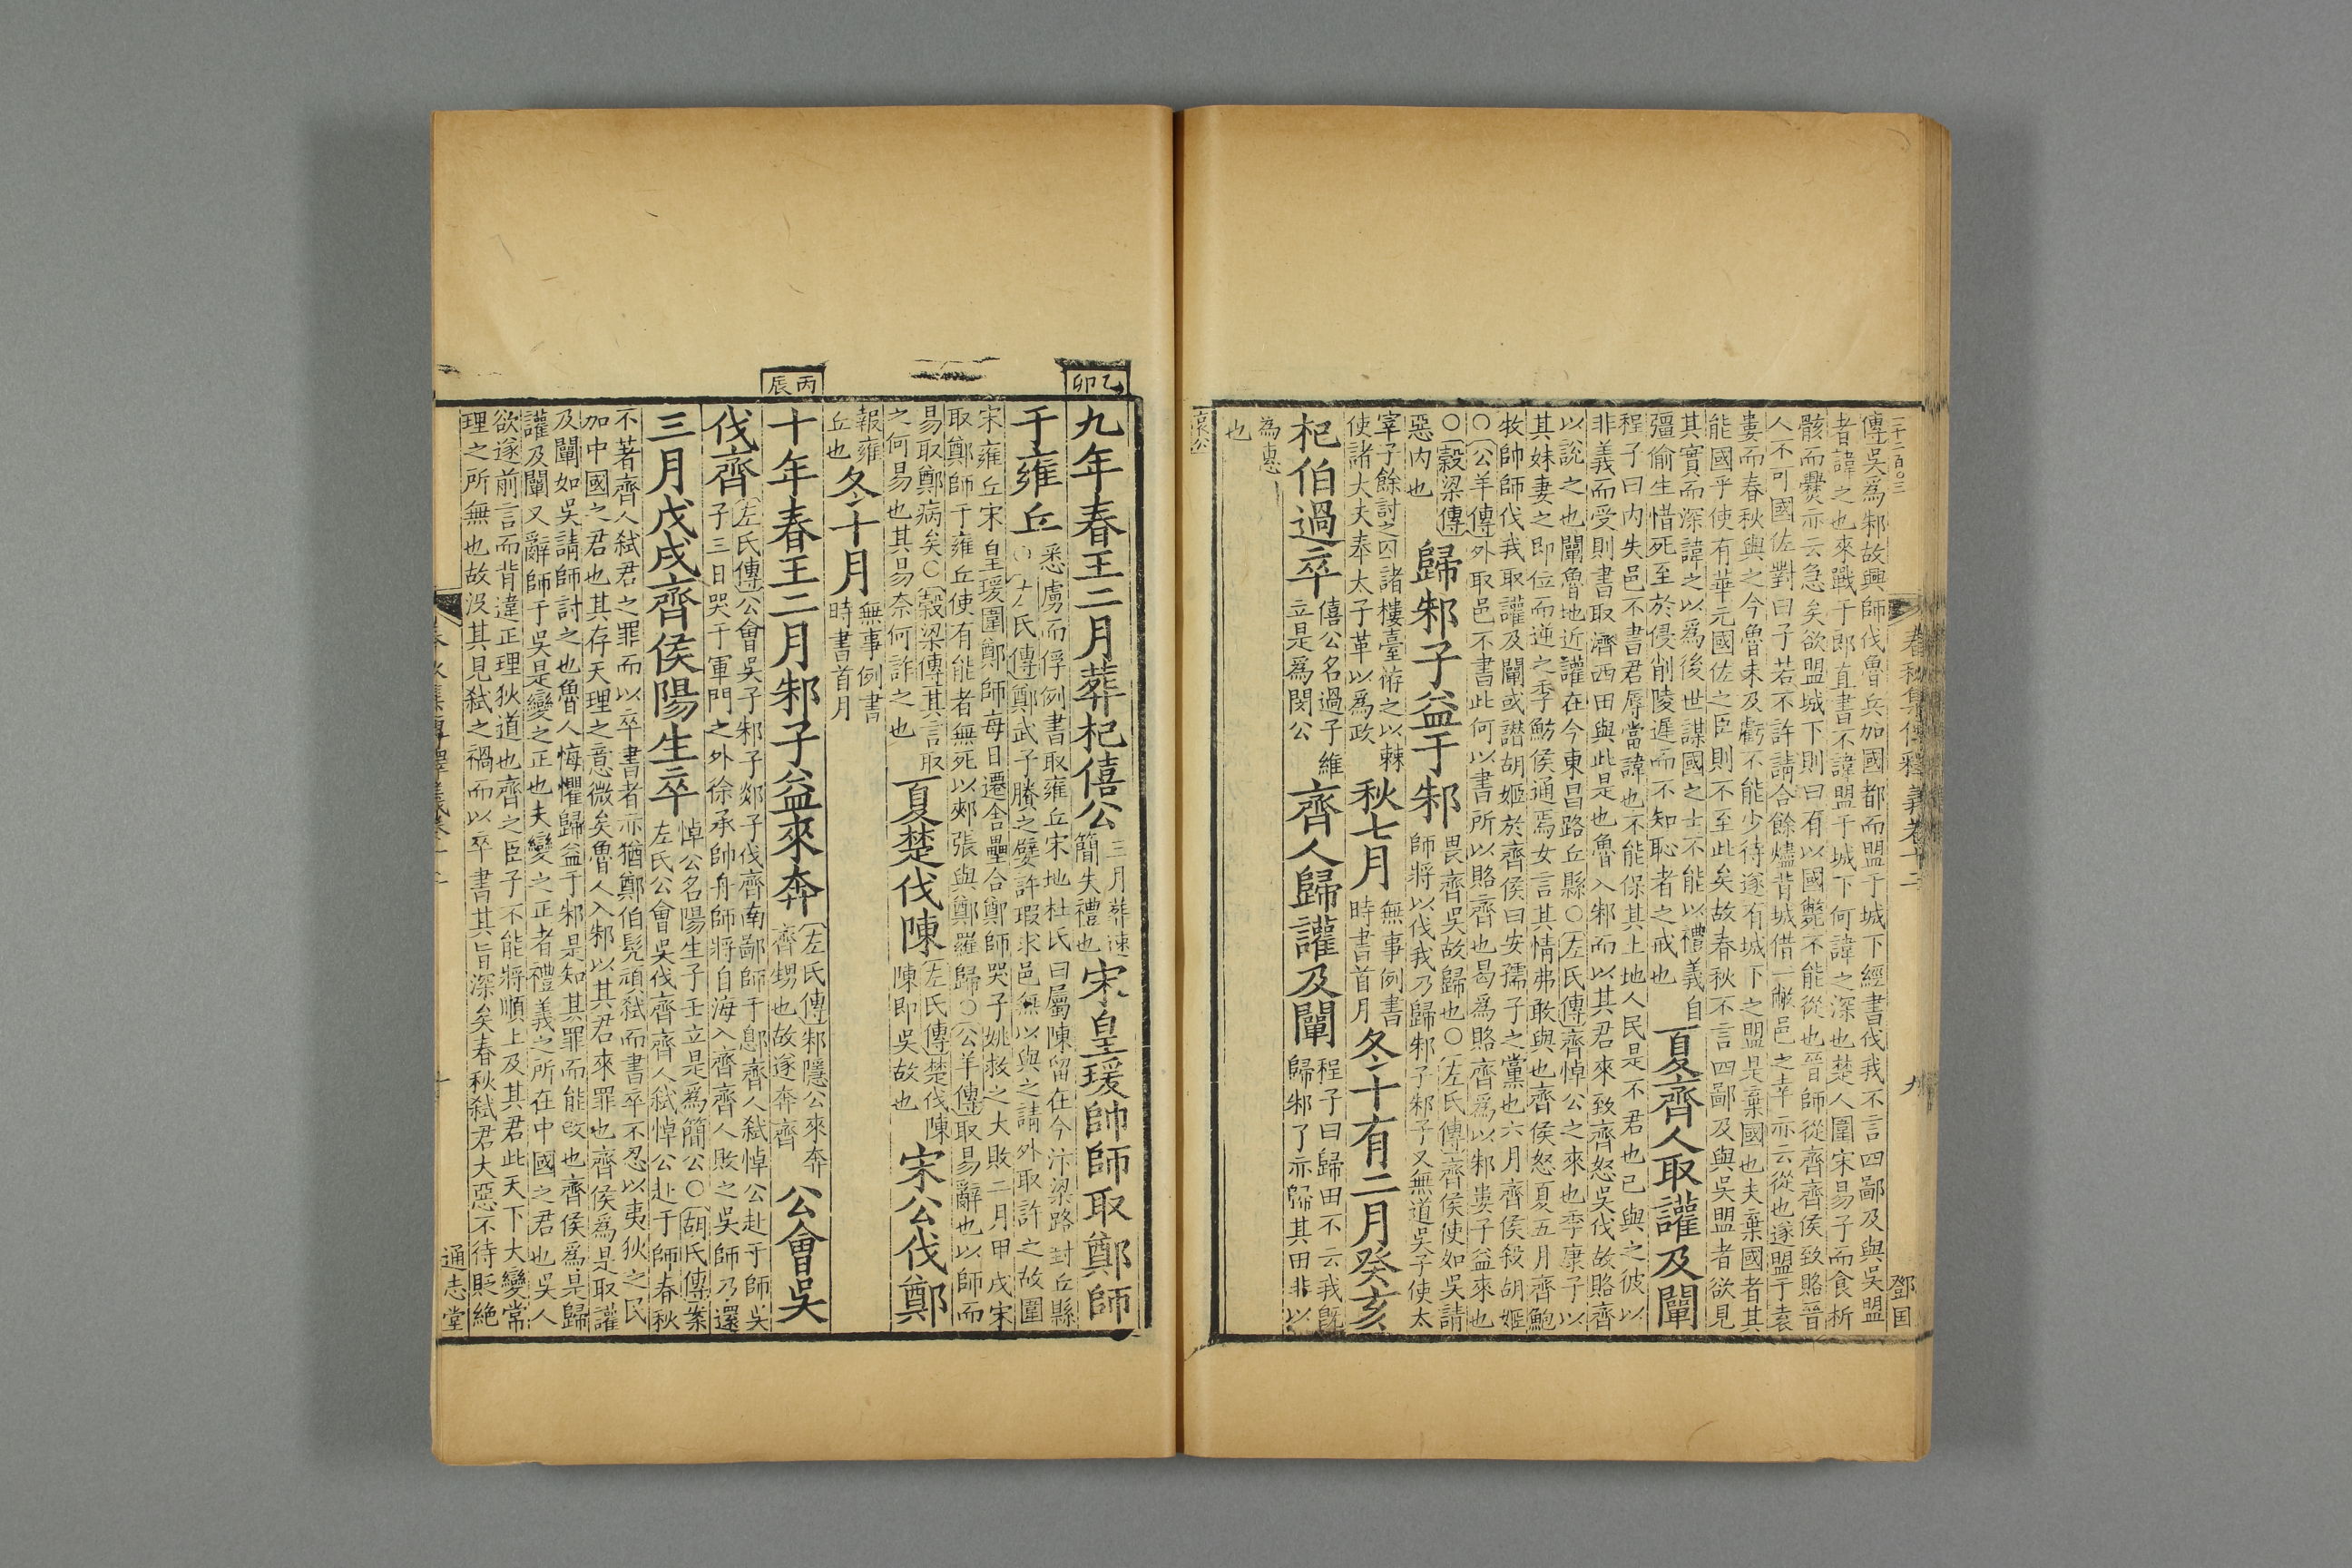 二十二百〇三
春秋集傳釋義卷十二 九
鄧国
傳吳為邾故興師伐魯兵加國都而盟于城下經書伐我不言四鄙及與吳盟
者諱之也來戰于郎直書不諱盟于城下何諱之深也楚人圍宋易子而食析
骸而爨亦云急矣欲盟城下則曰有以國斃不能從也晉師從齊齊侯致賂晉
人不可國佐對曰子若不許請合餘燼背城借一敝邑之幸亦云從也遂盟于袁
婁而春秋與之今魯未及虧不能少待遂有城下之盟是棄國也夫棄國者其
能國乎使有華元國佐之臣則不至此矣故春秋不言四鄙及與吳盟者欲見
其實而深諱之以為後世謀國之士不能以禮義自
彊偷生惜死至於侵削陵遲而不知恥者之戒也
夏齊人取讙及闡
程子曰內失邑不書君辱當諱也不能保其土地人民是不君也已與之彼以
非義而受則書取濟西田與此是也魯入邾而以其君來致齊怒吳伐故賂齊
以說之也闡魯地近讙在今東昌路丘縣〇左氏傳齊悼公之來也季康子以
其妹妻之即位而逆之季魴侯通焉女言其情弗敢與也齊侯怒夏五月齊鮑
牧帥師伐我取讙及闡或譖胡姬於齊侯曰安孺子之黨也六月齊侯殺胡姬
〇公羊傳外取邑不書此何以書所以賂齊也曷為賂齊為以邾婁子益來也
〇穀梁傳
惡內也
歸邾子益于邾
畏齊吳故歸也〇左氏傳齊侯使如吳請
師將以伐我乃歸邾子邾子又無道吳子使太
宰子餘討之囚諸樓臺栫之以棘
使諸大夫奉太子革以為政
秋七月
無事例書
時書首月
冬十有二月癸亥
杞伯過卒
僖公名過子維
立是為閔公
齊人歸讙及闡
程子曰歸田不云我既
歸邾了亦歸其田非以
為惠
也
哀公
乙卯
九年春王二月葬杞僖公
三月葬速
簡失禮也
宋皇瑗帥師取鄭師
于雍丘
悉虜而俘例書取雍丘宋地杜氏曰屬陳留在今汴梁路封丘縣
〇左氏傳鄭武子賸之嬖許瑕求邑無以與之請外取許之故圍
宋雍丘宋皇瑗圍鄭師每日遷舍壘合鄭師哭子姚救之大敗二月甲戌宋
取鄭師于雍丘使有能者無死以郟張與鄭羅歸〇公羊傳取易辭也以師而
易取鄭病矣〇穀梁傳其言取
之何易也其易奈何詐之也
夏楚伐陳
左氏傳楚伐陳
陳即吳故也
宋公伐鄭
報雍
丘也
冬十月
無事例書
時書首月
丙辰
十年春王二月邾子益來奔
左氏傳邾隱公來奔
齊甥也故遂奔齊
公會吳
伐齊
左氏傳公會吳子邾子郯子伐齊南鄙師于鄎齊人弒悼公赴于師吳
子三日哭于軍門之外徐承帥舟師將自海入齊齊人敗之吳師乃還
三月戊戌齊侯陽生卒
悼公名陽生子壬立是為簡公〇胡氏傳案
左氏公會吳伐齊齊人弒悼公赴于師春秋
不著齊人弒君之罪而以卒書者亦猶鄭伯髡頑弒而書卒不忍以夷狄之民
加中國之君也其存天理之意微矣魯人入邾以其君來罪也齊侯為是取讙
及闡如吳請師討之也魯人悔懼歸益于邾是知其罪而能改也齊侯為是歸
讙及闡又辭師于吳是變之正也夫變之正者禮義之所在中國之君也吳人
欲遂前言而背違正理狄道也齊之臣子不能將順上及其君此天下大變常
理之所無也故沒其見弒之禍而以卒書其旨深矣春秋弒君大惡不待貶絕
通志堂